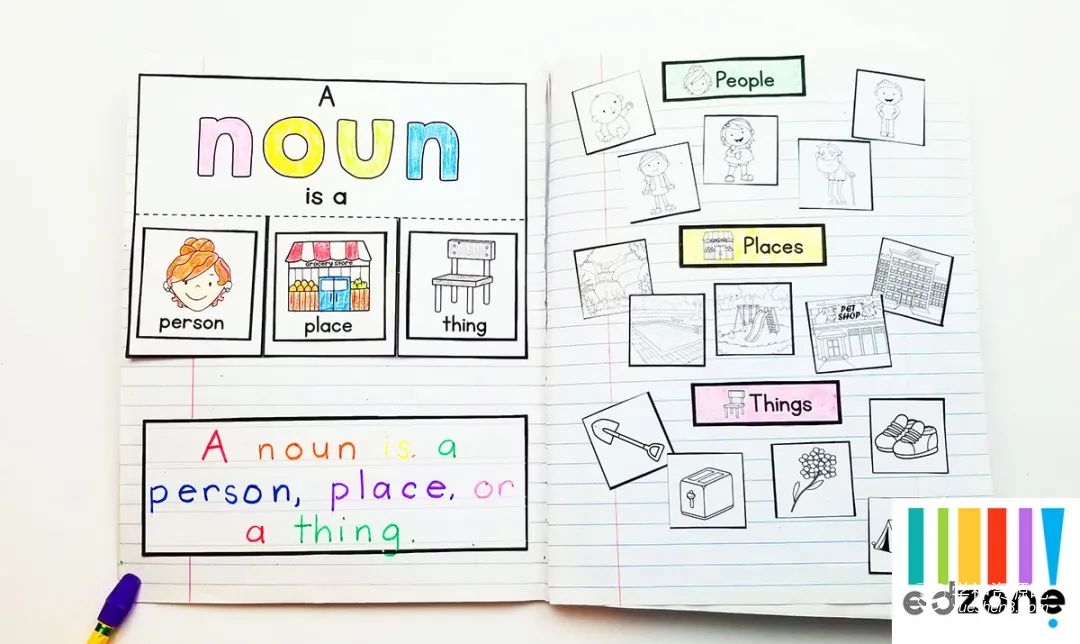 A
noun
is a
person
GROCERY STORE
place
thing
A noun is a
person, place, or
a thing.
People
Places
PET
SHOP
Things
edzone